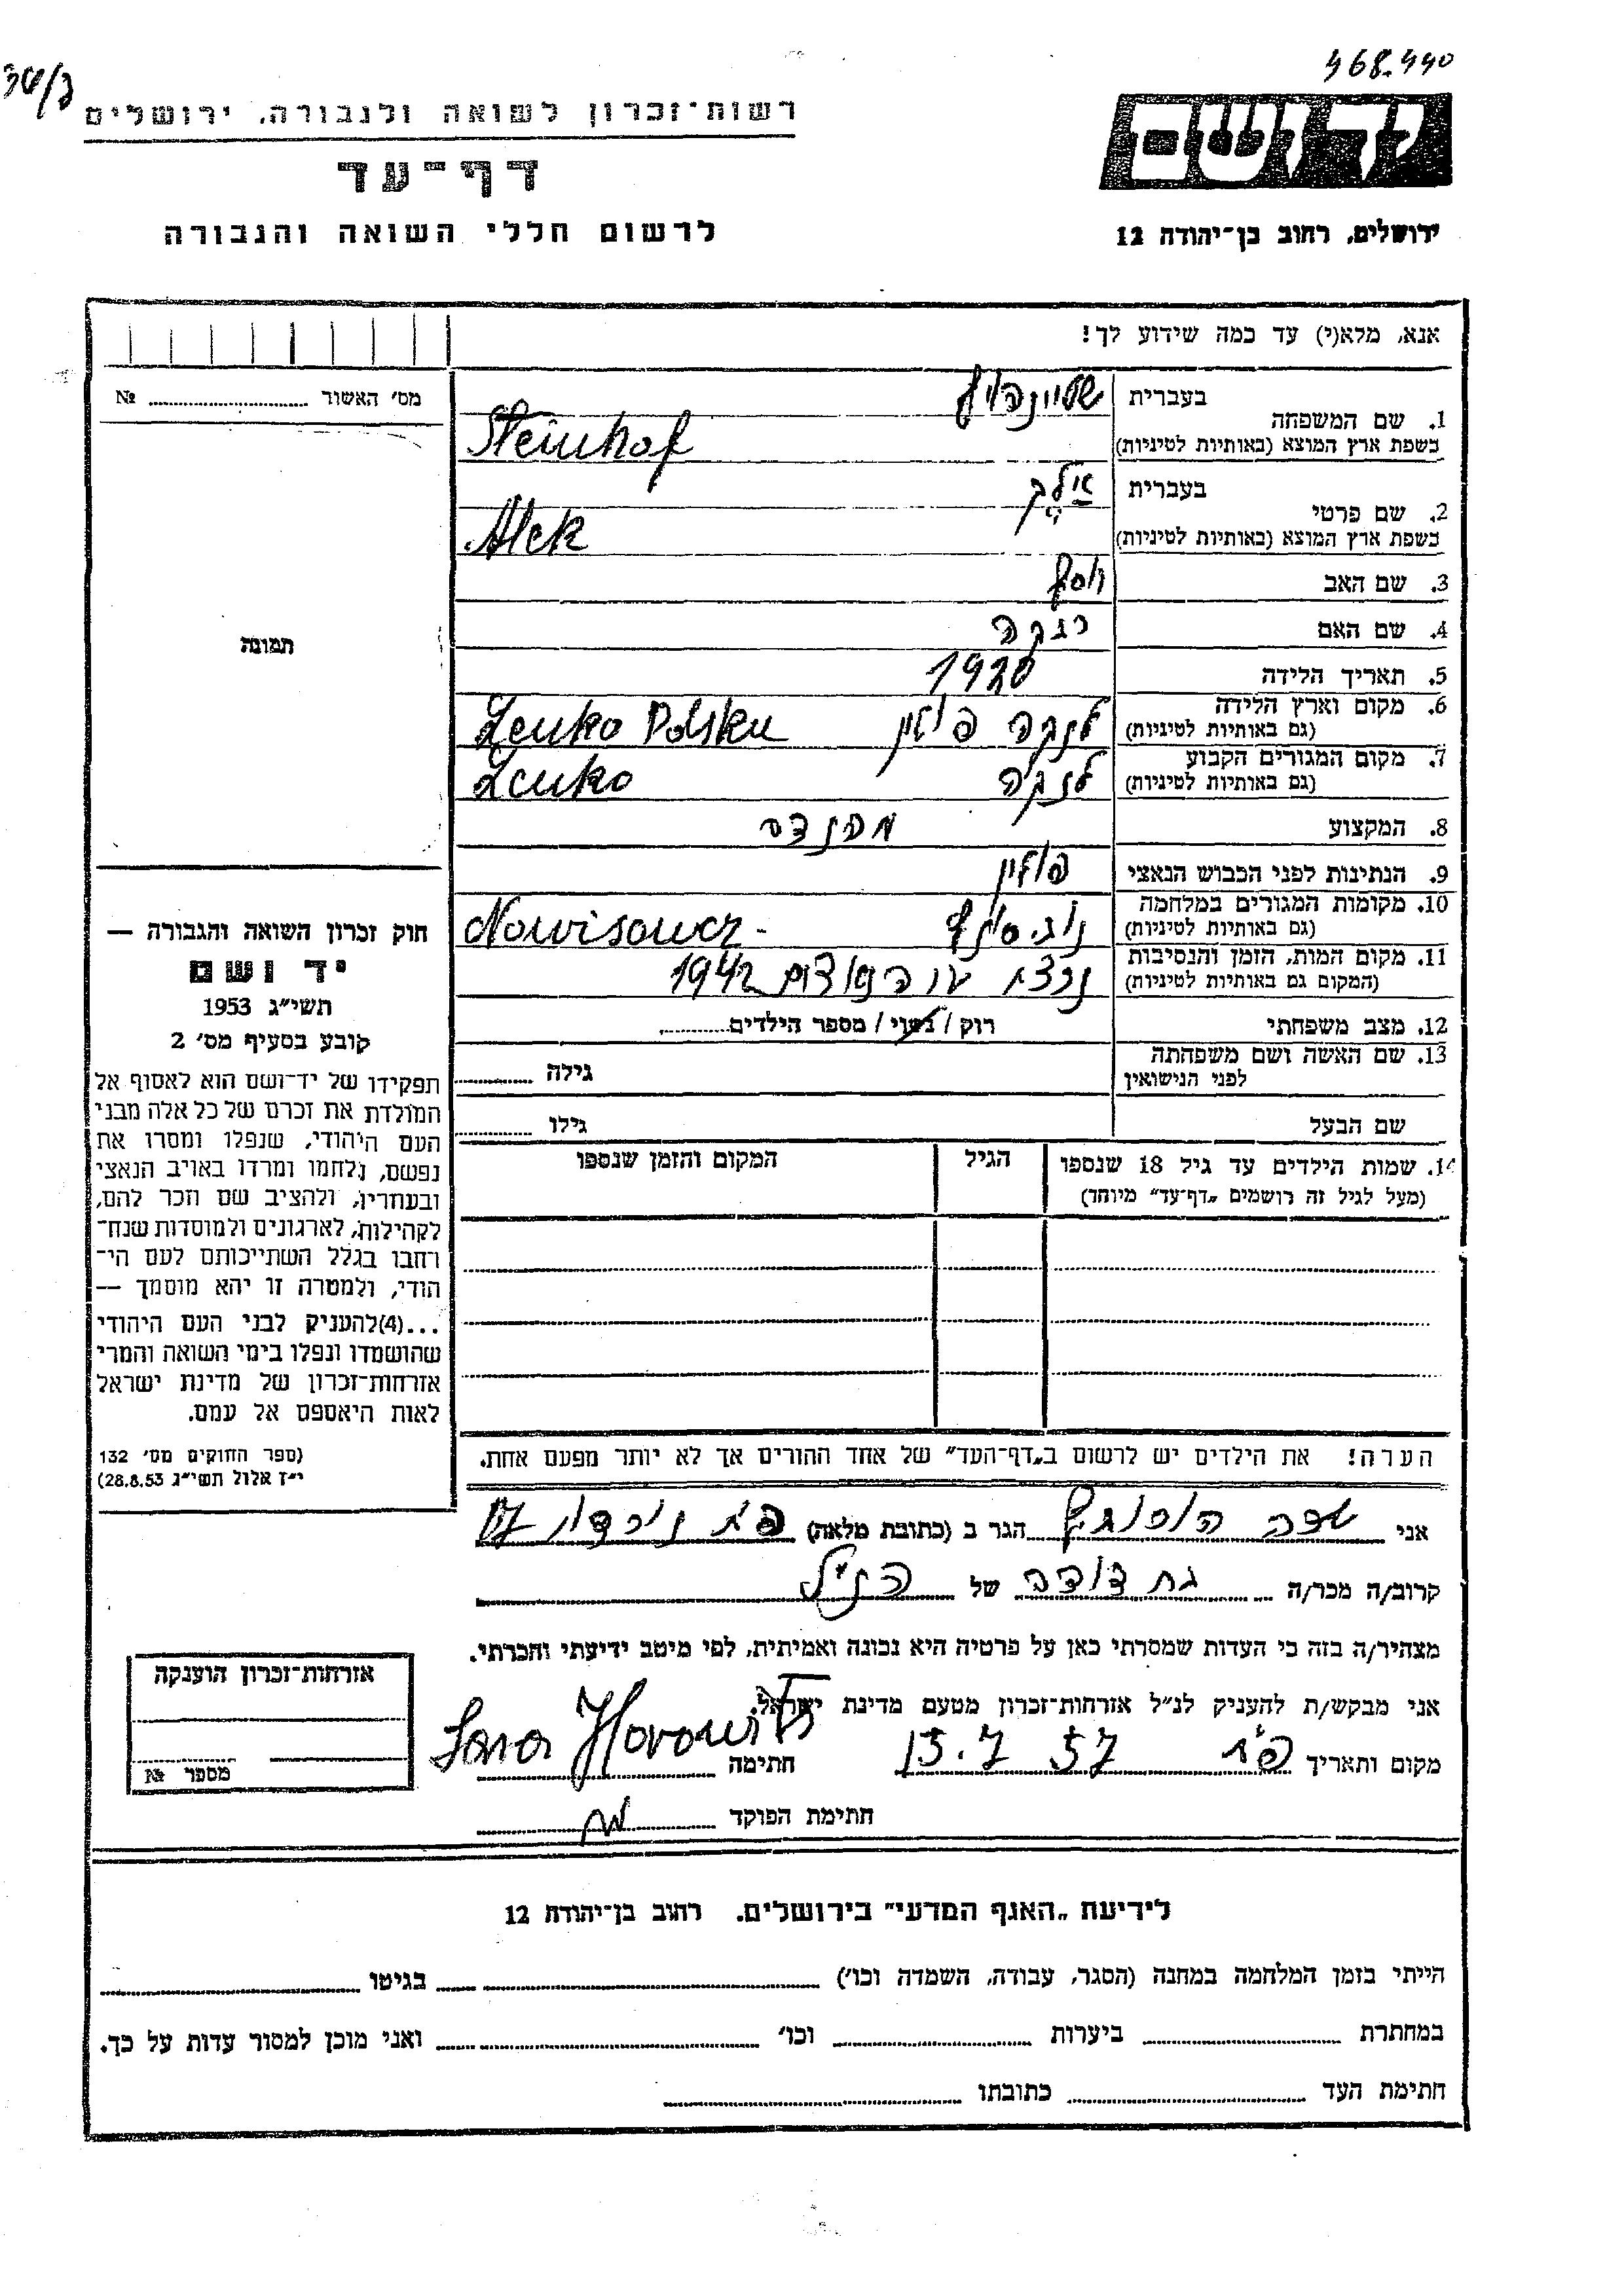 468.440
רשות־זכרון לשואה ולגבורה, ירושלים
דף־עד
לרשום חללי השואה והגבורה
יד ושם
ירושלים, רחוב בן־יהודה 12
אנא, מלא(י) עד כמה שידוע לך!
מס׳ האשור № ........
תמונה
1. שם המשפחה
בעברית שטיינהויף
בשפת ארץ המוצא (באותיות לטיניות) Steinhof
2. שם פרטי
בעברית
בשפת ארץ המוצא (באותיות לטיניות) Alek
3. שם האב יוסף
4. שם האם רבקה
5. תאריך הלידה 1920
6. מקום וארץ הלידה
(גם באותיות לטיניות) לנקה פולין Lenko Polska
7. מקום המגורים הקבוע
(גם באותיות לטיניות) לנקה Lenko
8. המקצוע מהנדס
9. הנתינות לפני הכבוש הנאצי פולין
10. מקומות המגורים במלחמה
(גם באותיות לטיניות)
11. מקום המות, הזמן והנסיבות
(המקום גם באותיות לטיניות) 1942
12. מצב משפחתי רוק / נשוי / מספר הילדים........
13. שם האשה ושם משפחתה
לפני הנישואין גילה ........
שם הבעל גילו ........
14. שמות הילדים עד גיל 18 שנספו
(מעל לגיל זה רושמים „דף־עד״ מיוחד)
הגיל
המקום והזמן שנספו
הערה! את הילדים יש לרשום ב„דף־העד״ של אחד ההורים אך לא יותר מפעם אחת.
חוק זכרון השואה והגבורה —
יד ושם
תשי״ג 1953
קובע בסעיף מס׳ 2
תפקידו של יד־ושם הוא לאסוף אל
המולדת את זכרם של כל אלה מבני
העם היהודי, שנפלו ומסרו את
נפשם, נלחמו ומרדו באויב הנאצי
ובעוזריו, ולהציב שם וזכר להם,
לקהילות, לארגונים ולמוסדות שנח־
רבו בגלל השתייכותם לעם הי־
הודי, ולמטרה זו יהא מוסמך —
...(4)להעניק לבני העם היהודי
שהושמדו ונפלו בימי השואה והמרי
אזרחות־זכרון של מדינת ישראל
לאות היאספם אל עמם.
(ספר החוקים מס׳ 132
י״ז אלול תשי״ג 28.8.53)
אני שרה הורוביץ הגר ב (כתובת מלאה)
קרוב/ה מכר/ה בת דודה של הנ״ל
מצהיר/ה בזה כי העדות שמסרתי כאן על פרטיה היא נכונה ואמיתית, לפי מיטב ידיעתי והכרתי.
אני מבקש/ת להעניק לנ״ל אזרחות־זכרון מטעם מדינת ישראל.
מקום ותאריך 15.7 57 חתימה Sara Horowitz
חתימת הפוקד
אזרחות־זכרון הוענקה
מספר №
לידיעת „האגף המדעי״ בירושלים. רחוב בן־יהודה 12
הייתי בזמן המלחמה במחנה (הסגר, עבודה, השמדה וכו׳) ........ בגיטו ........
במחתרת ........ ביערות ........ וכו׳ ........ ואני מוכן למסור עדות על כך.
חתימת העד ........ כתובתו ........